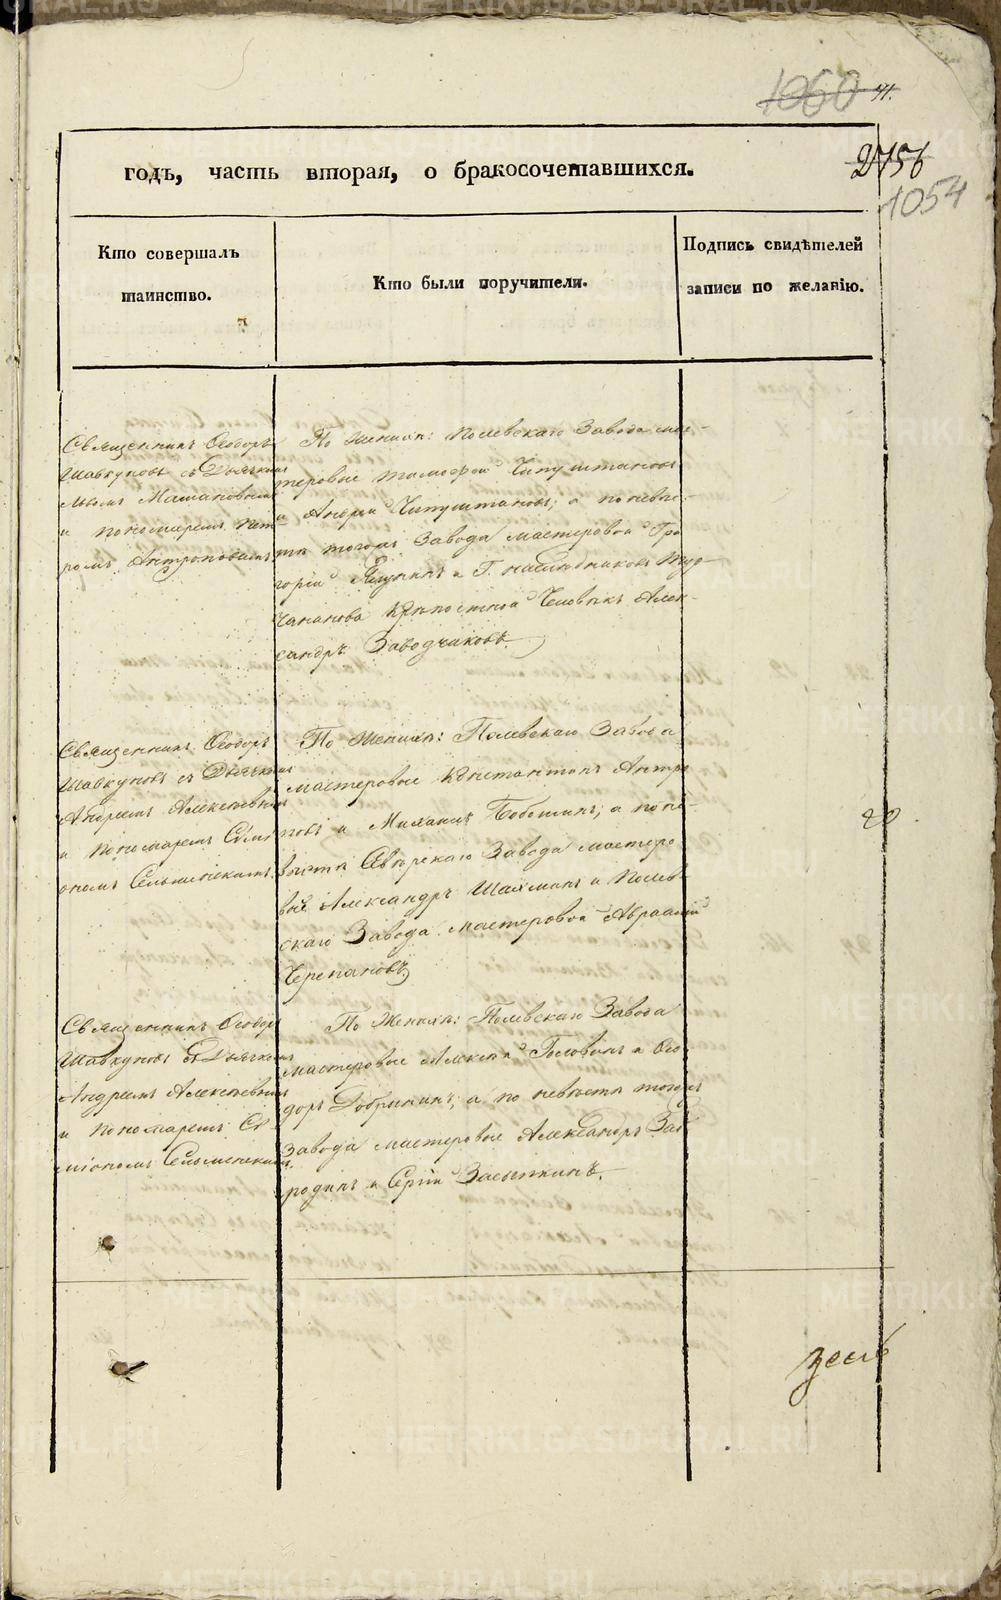 1060 91.
годъ, часть вторая, о бракосочетавшихся.
2756
1054
Кто совершалъ
таинство.
Кто были поручители.
Подпись свидѣтелей
записи по желанію.
Священникъ Ѳеодоръ
Шавкуновъ съ Дьячкомъ
и пономаремъ Пет-
ромъ Антроповымъ
По женихѣ: Полевскаго Завода мас-
теровые Тимофей Чипуштановъ
и Андрей Чипуштановъ; а по невѣс-
тѣ тогожъ Завода мастеровой Гри
горій и Г. наслѣдниковъ Тур-
чанинова крѣпостной человѣкъ Алек-
сандръ Заводчиковъ.
Священникъ Ѳеодоръ
Шавкуновъ съ Дьячкомъ
Андреемъ Алексѣевымъ
и пономаремъ Сѵмі
ономъ
По женихѣ: Полевскаго Завода
мастеровые Константинъ Антро
повъ и Михаилъ; а по не-
вѣстѣ Сѣверскаго Завода мастеро
вой Александръ Шахминъ и Полев-
скаго Завода мастеровой Авраамій
Черепановъ.
20
Священникъ Ѳеодоръ
Шавкуновъ съ Дьячкомъ
Андреемъ Алексѣевымъ
и пономаремъ Сѵ
міономъ
По женихѣ: Полевскаго Завода
мастеровые Алексѣй Головинъ и Ѳео
доръ Добрынинъ; а по невѣстѣ тогожъ
Завода мастеровые Александръ Заб
родинъ и Сергій Засыпкинъ.
METRIKI.GASO-URAL.RU